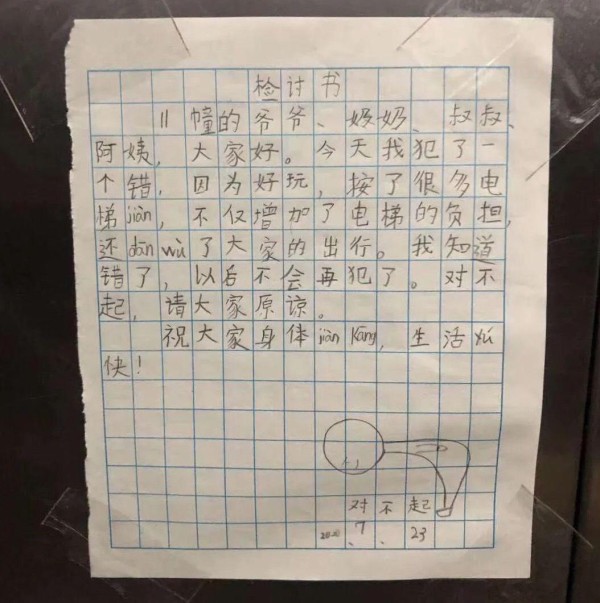 检讨书
11幢的爷爷、奶奶、叔叔、
阿姨，大家好。今天我犯了一
个错，因为好玩，按了很多电
梯jiàn，不仅增加了电梯的负担，
还dān wù了大家的出行。我知道
错了，以后不会再犯了。对不
起，请大家原谅。
祝大家身体jiàn kāng，生活yú
快！
对不起
7、23